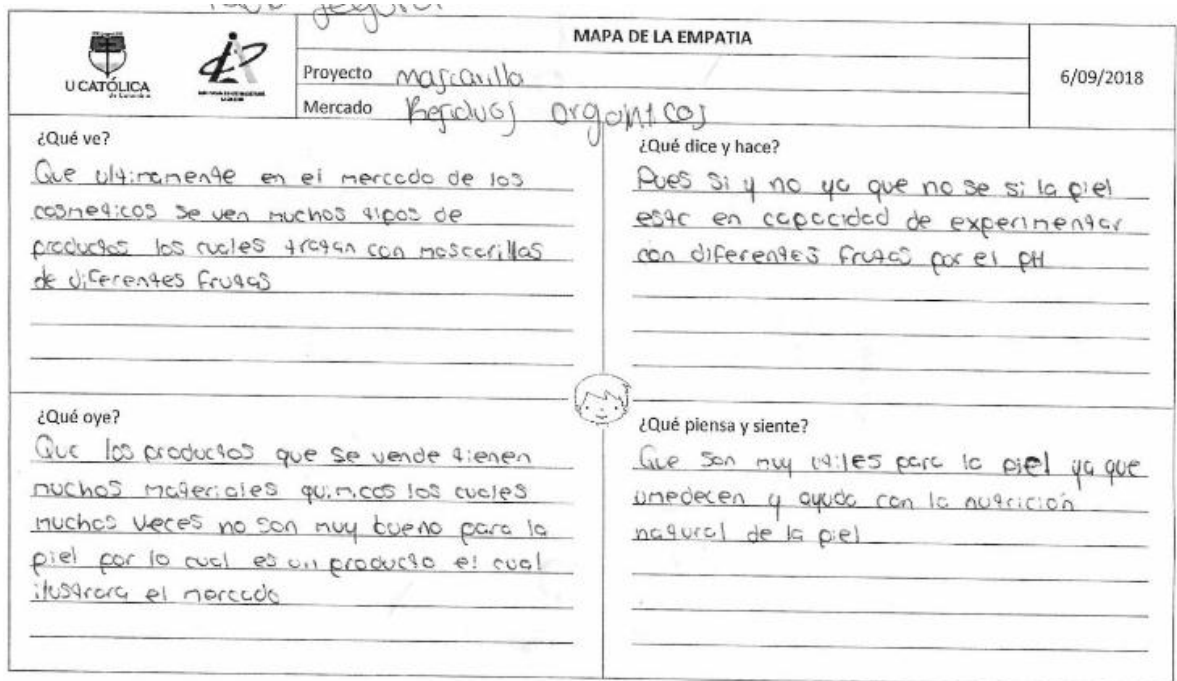 MAPA DE LA EMPATIA
U CATÓLICA
de Colombia
Proyecto mascarilla
6/09/2018
Mercado Residuos organicos
¿Qué ve?
Que ultimamente en el mercado de los
cosmeticos se ven muchos tipos de
productos los cuales tratan con mascarillas
de diferentes frutas
¿Qué dice y hace?
Pues si y no ya que no se si la piel
este en capacidad de experimentar
con diferentes frutas por el pH
¿Qué oye?
Que los productos que se vende tienen
muchos materiales quimicos los cuales
muchas veces no son muy bueno para la
piel por lo cual es un producto el cual
ilustrara el mercado
¿Qué piensa y siente?
Que son muy utiles para la piel ya que
umedecen y ayuda con la nutrición
natural de la piel